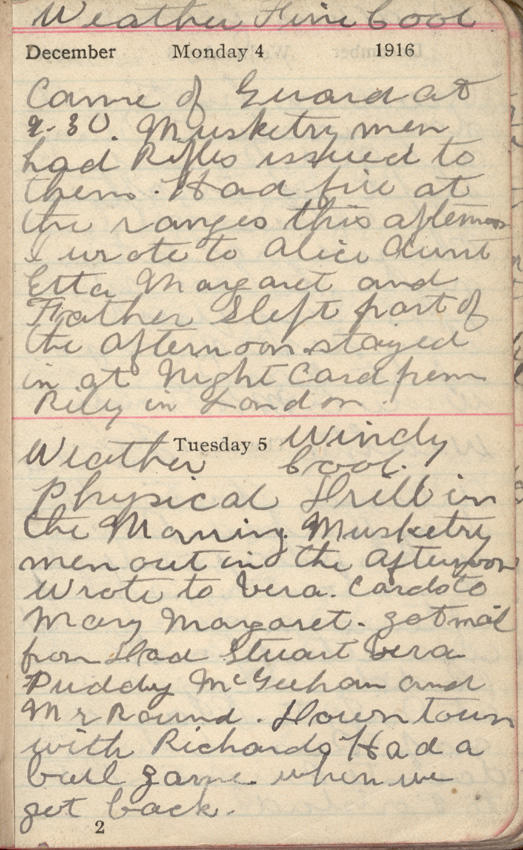 Weather Fine Cool
December Monday 4 1916
Came of Guard at
9-30. Musketry men
had Rifles issued to
them. Had fire at
the ranges this afternoon
I wrote to Alice Aunt
Etta Margaret and
Father Slept part of
the afternoon. stayed
in at Night Card from
Rily in London.
Weather Tuesday 5 Windy
Cool.
Physical Drill in
the Morning. Musketry
men out in the afternoon
Wrote to Vera. Cards to
Mary Margaret. got mail
from Dad Stuart Vera
Puddy McGeehan and
Mr Round. Down town
with Richards Had a
ball game when we
get back.
2